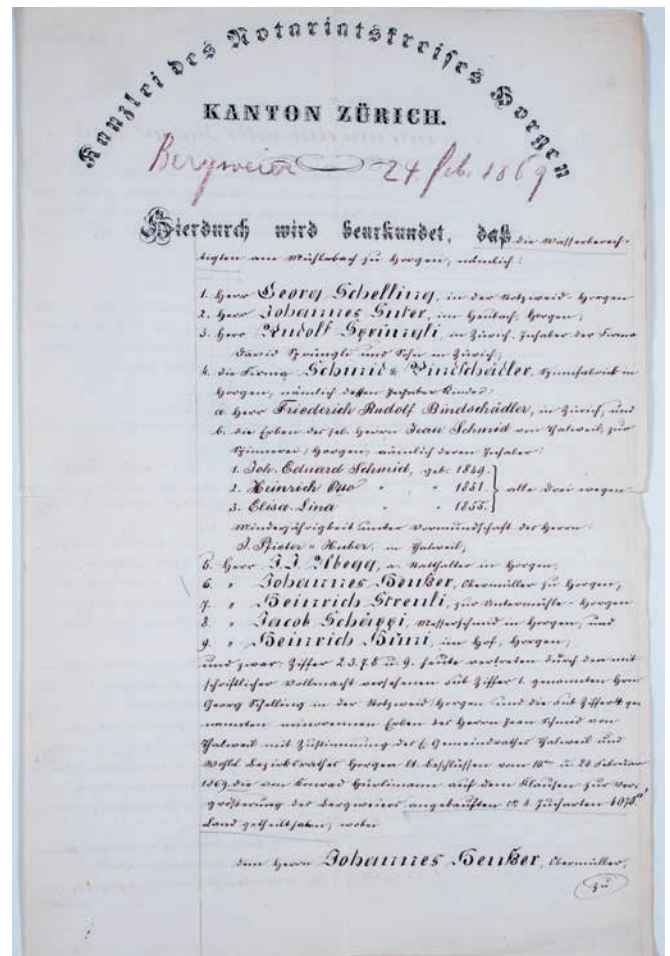 Kanzlei des Notariatskreises Horgen
KANTON ZÜRICH.
Bergweier 24. Feb. 1869
Hierdurch wird beurkundet, daß die Wasserberech-
tigten am Mühlebach zu Horgen, nämlich:
1. Herr Georg Schelling, in der Rotzweid-Horgen
2. Herr Johannes Suter, im Horgen;
3. Herr Rudolf Sprüngli, in Zürich, Inhaber der Firma
David Sprüngli und Sohn in Zürich;
4. die Firma Schmid & Bindschädler, Spinnfabrik in
Horgen, nämlich deßen Inhaber
a. Herr Friederich Rudolf Bindschädler, in Zürich, und
b. die Erben des sel. Herrn Jean Schmid von Thalweil, zur
Spinnerei, Horgen, nämlich deren Inhaber:
1. Joh. Eduard Schmid, geb. 1849.
2. Heinrich Otto " " 1851. } alle drei wegen
3. Elisa. Lina " " 1855.
Minderjährigkeit unter Vormundschaft des Herrn
J. Huber, in Thalweil;
5. Herr J. J. Abegg, a. Statthalter in Horgen;
6. " Johannes Heußer, Obermüller zu Horgen;
7. " Heinrich Streuli, zur Untermühle-Horgen
8. " Jacob Schäppi, Messerschmid in Horgen, und
9. " Heinrich Hüni, im Hof, Horgen;
und zwar Ziffer 2.3.7.8. u. 9. heute vertreten durch den mit
schriftlicher Vollmacht versehenen sub Ziffer 1. genannten Hrn
Georg Schelling in der Rotzweid, Horgen und die sub Ziffer 4 ge
nannten minorennen Erben des Herrn Jean Schmid von
Thalweil mit Zustimmung des Gemeindrathes Thalweil und
Bezirksrathes Horgen lt. Beschlüssen vom 10ten u. 24 Februar
1869, die von Konrad Hürlimann auf dem Klausen zur Ver-
größerung des Bergweiers angekauften 4 Jucharten 4078
Land getheilt haben, wobei
dem Herrn Johannes Heußer, Obermüller,
zu